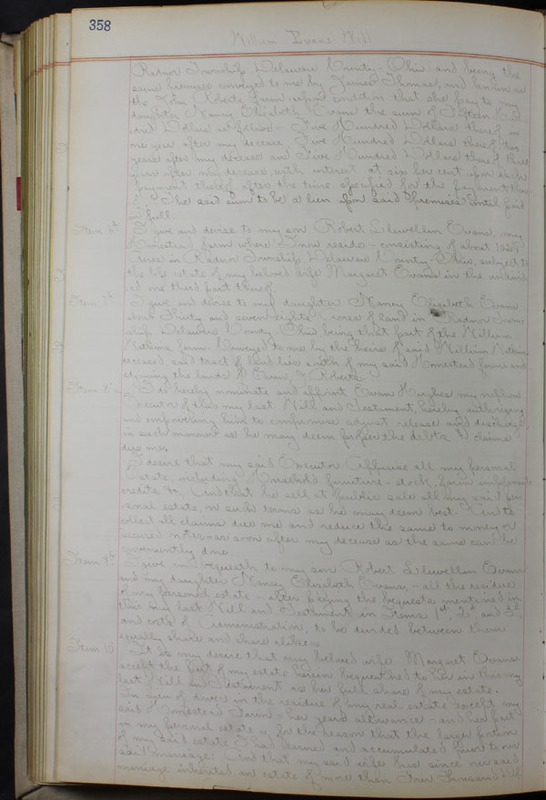 358
William Evans' Will
Radnor Township Delaware County Ohio and being the
same premises conveyed to me by James Thomas, and known as
the John Roberts farm upon condition that she pay to my
daughter Nancy Elizabeth Evans the sum of Fifteen Hun
dred Dollars as follows - Five Hundred Dollars thereof in
one year after my decease Five Hundred Dollars thereof two
years after my decease and Five Hundred Dollars thereof three
years after my decease, with interest at six per cent upon each
payment thereof after the time specified for the payment thereof
The said sum to be a lien upon said Premises until paid
in full.
Item 6th I give and devise to my son Robert Llewellin Evans, my
Homestead farm where I now reside - consisting of about
Acres in Radnor Township Delaware County Ohio, subject to
the life estate of my beloved wife Margaret Evans in the undivid
ed one third part thereof.
Item 7th I give and devise to my daughter Nancy Elizabeth Evans
acres of land in Radnor Town
ship Delaware County Ohio being that part of the William
farm conveyed to me by the heirs of said William
deceased said tract of land lies south of my said Homestead farm and
adjoining the lands of Evan Roberts
Item 8th I do hereby nominate and appoint Evan Hughes my nephew
Executor of this my last Will and Testament, hereby authorizing
and empowering him to compromise adjust release and discharge
in such manner as he may deem proper the debts & claims
due me.
I desire that my said Executor Appraise all my personal
Estate, including Household furniture - stock, farm implements
credits &c, And that he sell at Public sale all my said per
sonal estate, on such terms as he may deem best. And to
collect all claims due me and reduce the same to money or
secured notes - as soon after my decease as the same can be
conveniently done
Item 9th I give and bequeath to my son Robert Llewellin Evans
and my daughter Nancy Elizabeth Evans, - all the residue
of my personal estate - after paying the bequests mentioned in
this my last Will and Testament, in Items 1st, 2d, and 3d,
and costs of Administration, to be divided between them
equally share and share alike.
Item 10 It is my desire that my beloved wife Margaret Evans
accept the part of my estate herein bequeathed to her in this my
last Will and Testament as her full share of my estate.
In lieu of dower in the residue of my real estate except my
said Homestead Farm - her years allowance - and her part
in my personal estate for the reason that the larger portion
of my said estate I had earned and accumulated prior to our
said marriage: And that my said wife has since our said
marriage inherited an estate of more than Four Thousand